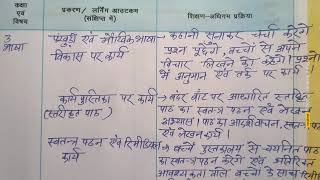 कक्षा
एवं
विषय
प्रकरण/ लर्निंग आउटकम
(संक्षिप्त में)
शिक्षण-अधिगम प्रक्रिया
3
भाषा
एवं मौखिक भाषा
विकास पर कार्य
→ कहानी सुनाकर चर्चा करेंगे
प्रश्न पूछेंगे, बच्चों से अपने
विचार लिखने को कहेंगे।
में अनुमान एवं तर्क पर कार्य।
कार्यपुस्तिका पर कार्य
पाठ)
→ बंदर बाँट पर आधारित
पाठ का स्वतन्त्र पठन एवं लेखन
अभ्यास। पाठ का स्वतन्त्र
एवं लेखन कार्य।
स्वतन्त्र पठन एवं
कार्य
→ बच्चे पुस्तकालय से चयनित पाठ
का स्वतन्त्र पठन करेंगे एवं अतिरिक्त
आवश्यकता वाले बच्चों के साथ